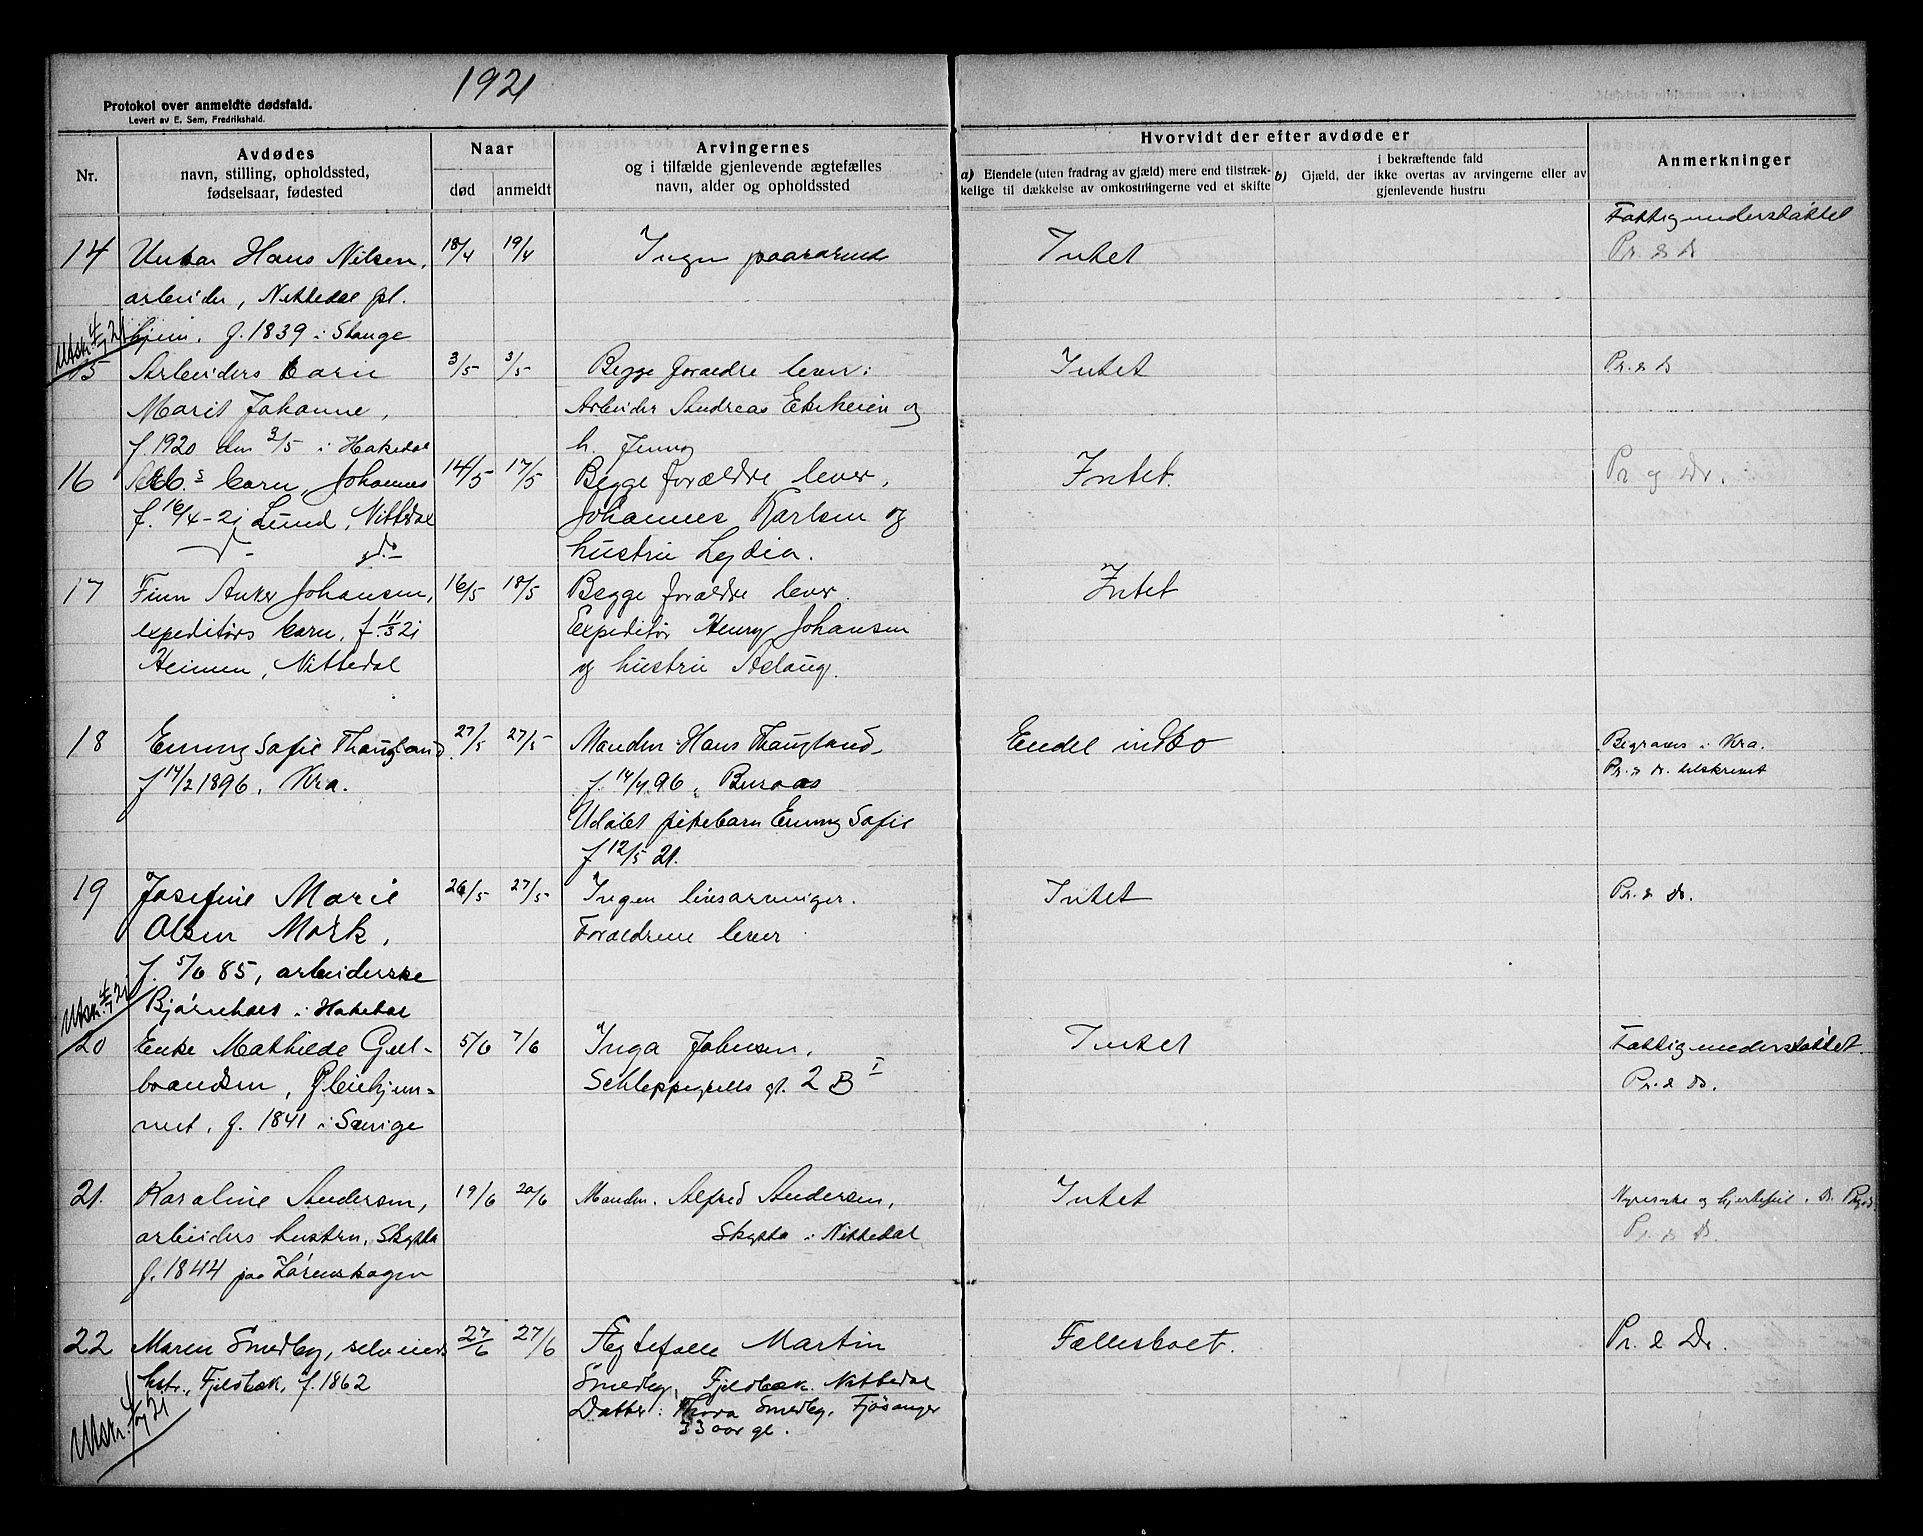 1921
Protokol over anmeldte dødsfald.
Levert av E. Sem, Fredrikshald.
Nr.
Avdødes
navn, stilling, opholdssted,
fødselsaar, fødested
Naar
død
anmeldt
Arvingernes
og i tilfælde gjenlevende ægtefælles
navn, alder og opholdssted
Hvorvidt der efter avdøde er
a) Eiendele (uten fradrag av gjæld) mere end tilstræk-
kelige til dækkelse av omkostningerne ved et skifte
i bekræftende fald
b) Gjæld, der ikke overtas av arvingerne eller av
gjenlevende hustru
Anmerkninger
Fattigunderstøttet
14 Hans Nilsen, 18/4 19/4 Ingen Intet Pr. & D
arbeider, Nittedal pl.
hjem. f. 1839 i Stange
Utskr. 4/7 21
15 Arbeiders barn 3/5 3/5 Begge foraeldre lever: Intet Pr. & D
Marit Johanne, Arbeider Andreas og
f. 1920 den 3/5 i Hakedal h. Jenny
16 barn, Johannes 14/5 17/5 Begge forældre lever, Intet. Pr og Dr.
f. 16/4-21 Lund, Nittedal Johannes Karlsen og
hustru Lydia.
17 Finn Anker Johansen, 16/5 18/5 Begge forældre lever. Intet
expeditørs barn, f. 11/3 21 Expeditør Henry Johansen
Heimen, Nittedal og hustru Aslaug.
18 Emmy Sofie Thaugland. 27/5 27/5 Manden Hans Thaugland, Endel indbo Begraves i Kra.
f 14/2 1896, Kra. f. 14/4 96, Buraas Pr. & D. tilskrevet
Udøbt pikebarn Emmy Sofie
f 12/5 21.
19 Josefine Marie 26/5 27/5 Ingen livsarvinger. Intet Pr. & D.
Olsen Mork, Foraeldrene lever
f. 5/6 85, arbeiderske
i Hakedal
Utskr. 4/7 21
20 Enke Mathilde Gul- 5/6 7/6 Inga Johnsen, Intet Fattigunderstøttet.
brandsen, Pleiehjem- Schleppegrells gt. 2 B I Pr. & D.
met, f. 1841 i Sverige
21. Karoline Andersen, 19/6 20/6 Manden. Alfred Andersen, Intet Nyresyke og hjertefeil. D.
arbeiders hustru, Skytta Skytta i Nittedal Pr. & D.
f. 1844 paa Lørenskogen
22 Maren Smedby, selveier 27/6 27/6 Ægtefælle Martin Fællesboet. Pr. & Dr.
hstr., Fjeldbæk, f. 1862 Smedby, Fjeldbæk. Nittedal
Datter: Thora Smedby, Fjøsanger
33 aar gl.
Utskr. 4/7 21